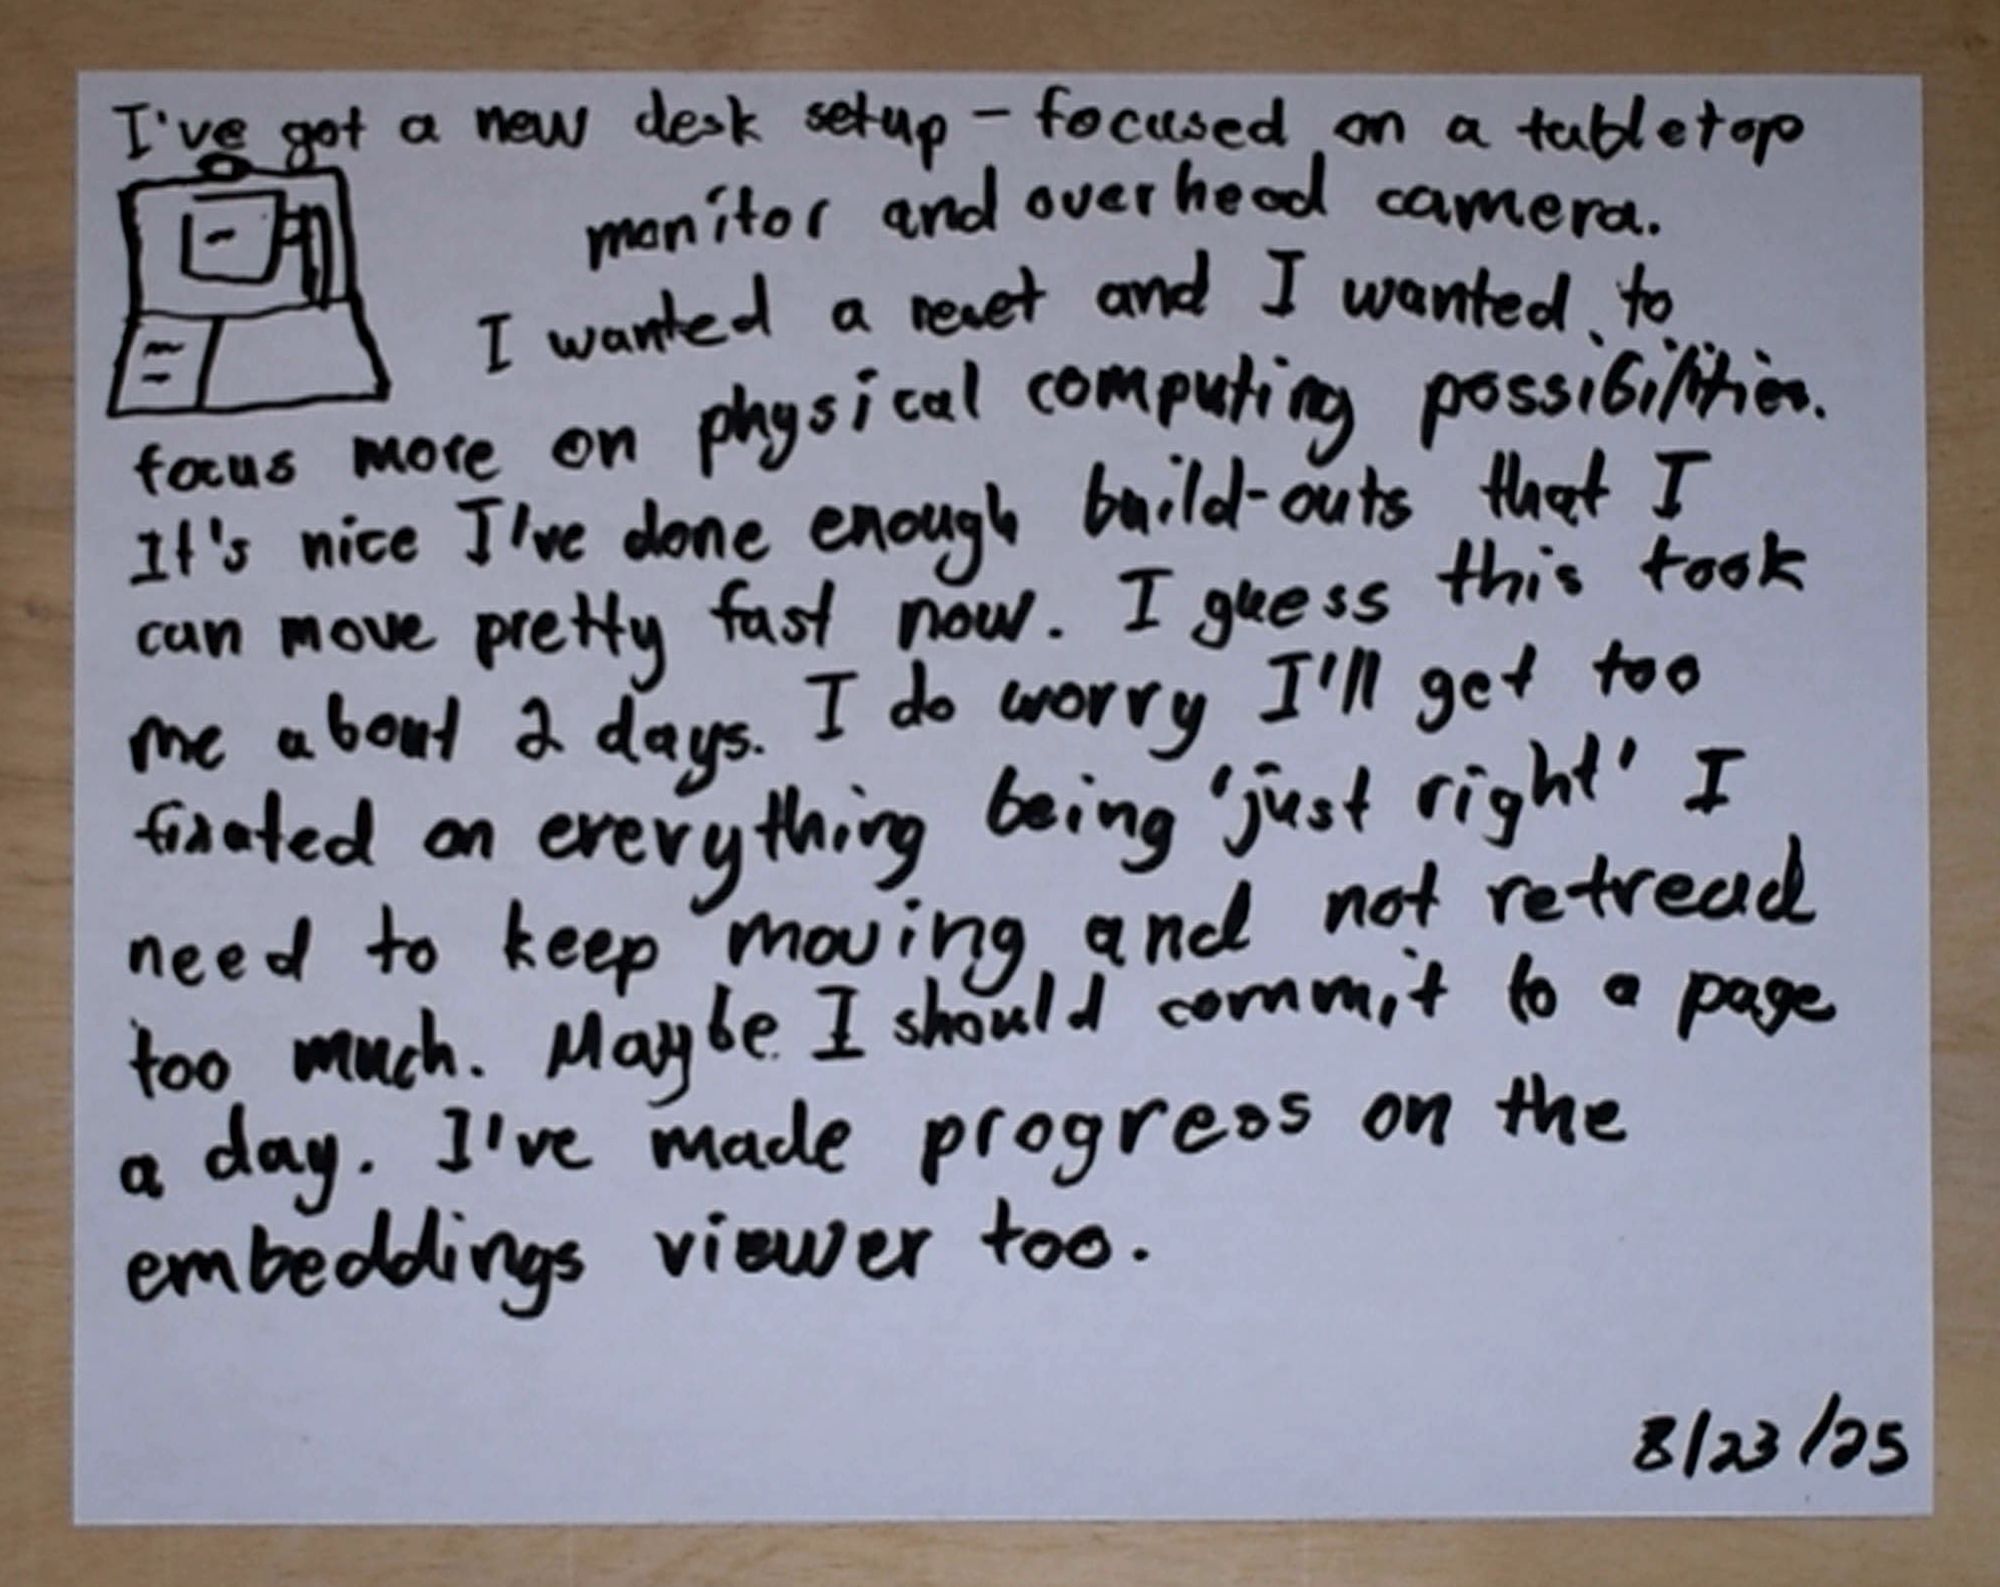 I've got a new desk setup – focused on a tabletop
monitor and overhead camera.
I wanted a reset and I wanted to
focus more on physical computing possibilities.
It's nice I've done enough build-outs that I
can move pretty fast now. I guess this took
me about 2 days. I do worry I'll get too
fixated on everything being 'just right' I
need to keep moving and not retread
too much. Maybe I should commit to a page
a day. I've made progress on the
embeddings viewer too.
8/23/25